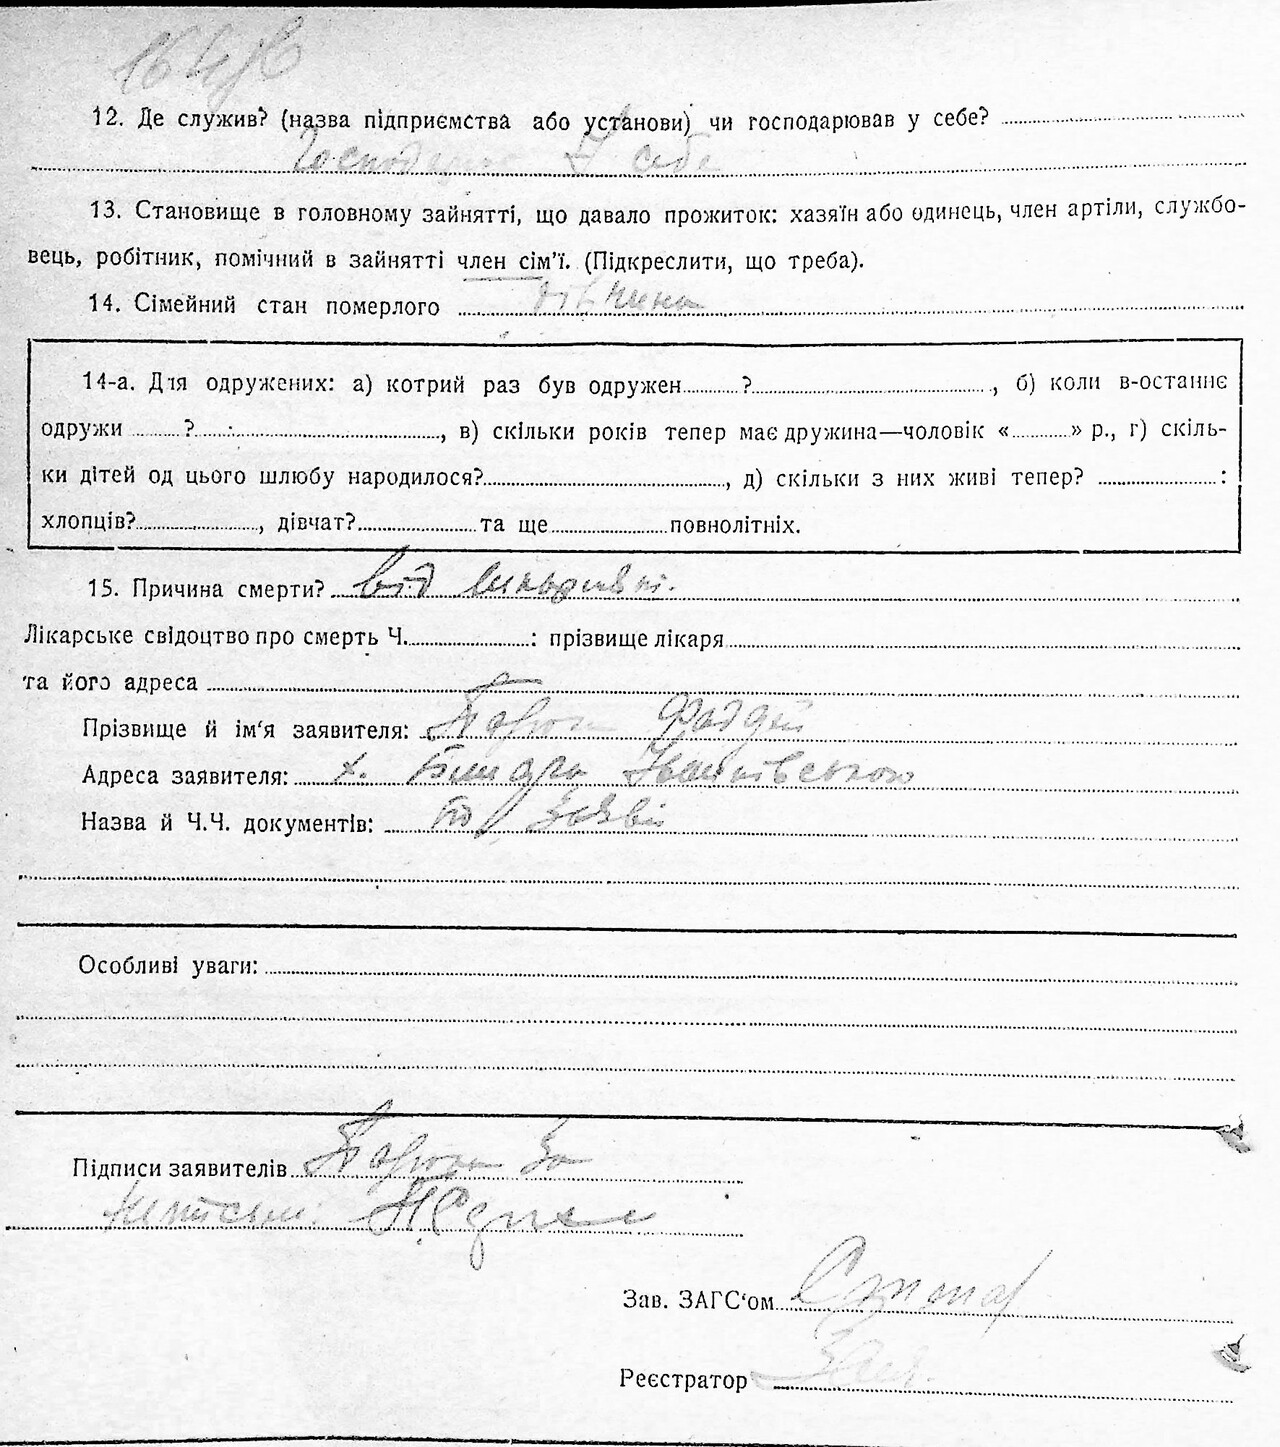 12. Де служив? (назва підприємства або установи) чи господарював у себе?
у себе
13. Становище в головному зайнятті, що давало прожиток: хазяїн або одинець, член артіли, службо-
вець, робітник, помічний в зайнятті член сім'ї. (Підкреслити, що треба).
14. Сімейний стан померлого дівчина
14-а. Для одружених: а) котрий раз був одружен ?, б) коли в-останнє
одружи ? :, в) скільки років тепер має дружина—чоловік « » р., г) скіль-
ки дітей од цього шлюбу народилося?, д) скільки з них живі тепер? :
хлопців?, дівчат? та ще повнолітніх.
15. Причина смерти? від
Лікарське свідоцтво про смерть Ч. : прізвище лікаря
та його адреса
Прізвище й ім'я заявителя: Фаддей
Адреса заявителя: х.
Назва й Ч.Ч. документів: по заяві
Особливі уваги:
Підписи заявителів за
Зав. ЗАГС'ом
Реєстратор